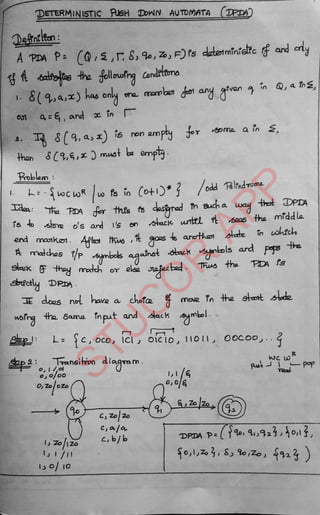 DETERMINISTIC PUSH DOWN AUTOMATA (DPDA)
Definition:
A PDA P = (Q, Σ, Γ, δ, q0, z0, F) is deterministic if and only
if it satisfies the following conditions
1. δ(q,a,x) has only one member for any given q in Q, a in Σ,
or a = ε, and x in Γ
2. If δ(q,a,x) is non empty for some a in Σ,
then δ(q,ε,x) must be empty.
Problem:
1. L = {wcw^R / w is in (0+1)*} /odd Palindrome
Idea: The PDA for this is designed in such a way that DPDA
is to store 0's and 1's on stack until it sees the middle
end marker. After this, it goes to another state in which
it matches i/p symbols against stack symbols and pops the
stack if they match or else rejected. Thus the PDA is
strictly DPDA.
It does not have a choice of move in the start state
using the same input and stack symbol.
Step 1: L = {C, 0C0, 1C1, 01C10, 11C11, 00C00, ..}
Step 2: Transition diagram.
wcw^R
push
read
pop
0,1/01
0,0/00
0,z0/0z0
1,1/ε
0,0/ε
q0
q1
ε,z0/z0
q2
C,z0/z0
C,a/a
C,b/b
1,z0/1z0
1,1/11
1,0/10
DPDA P = ({q0,q1,q2}, {0,1},
{0,1,z0}, δ, q0, z0, {q2})
STUCOR APP